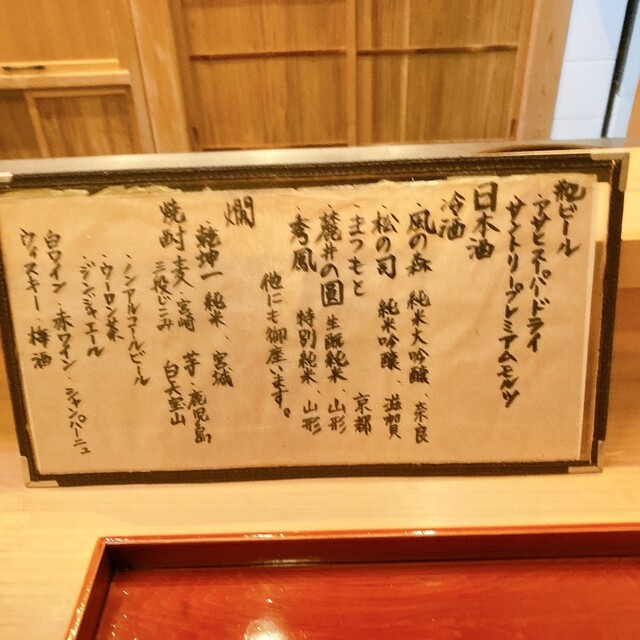 瓶ビール
・アサヒスーパードライ
サントリープレミアムモルツ
日本酒
冷酒
・風の森 純米大吟醸、奈良
・松の司 純米吟醸、滋賀
・まつもと 京都
・麓井の圓 生酛純米、山形
・秀鳳 特別純米、山形
他にも御座います。
燗
・乾坤一 純米、宮城
焼酎・麦、宮崎 芋、鹿児島
白天宝山
・ノンアルコールビール
・ウーロン茶
・ジンジャエール
白ワイン、赤ワイン、シャンパーニュ
ウィスキー、梅酒